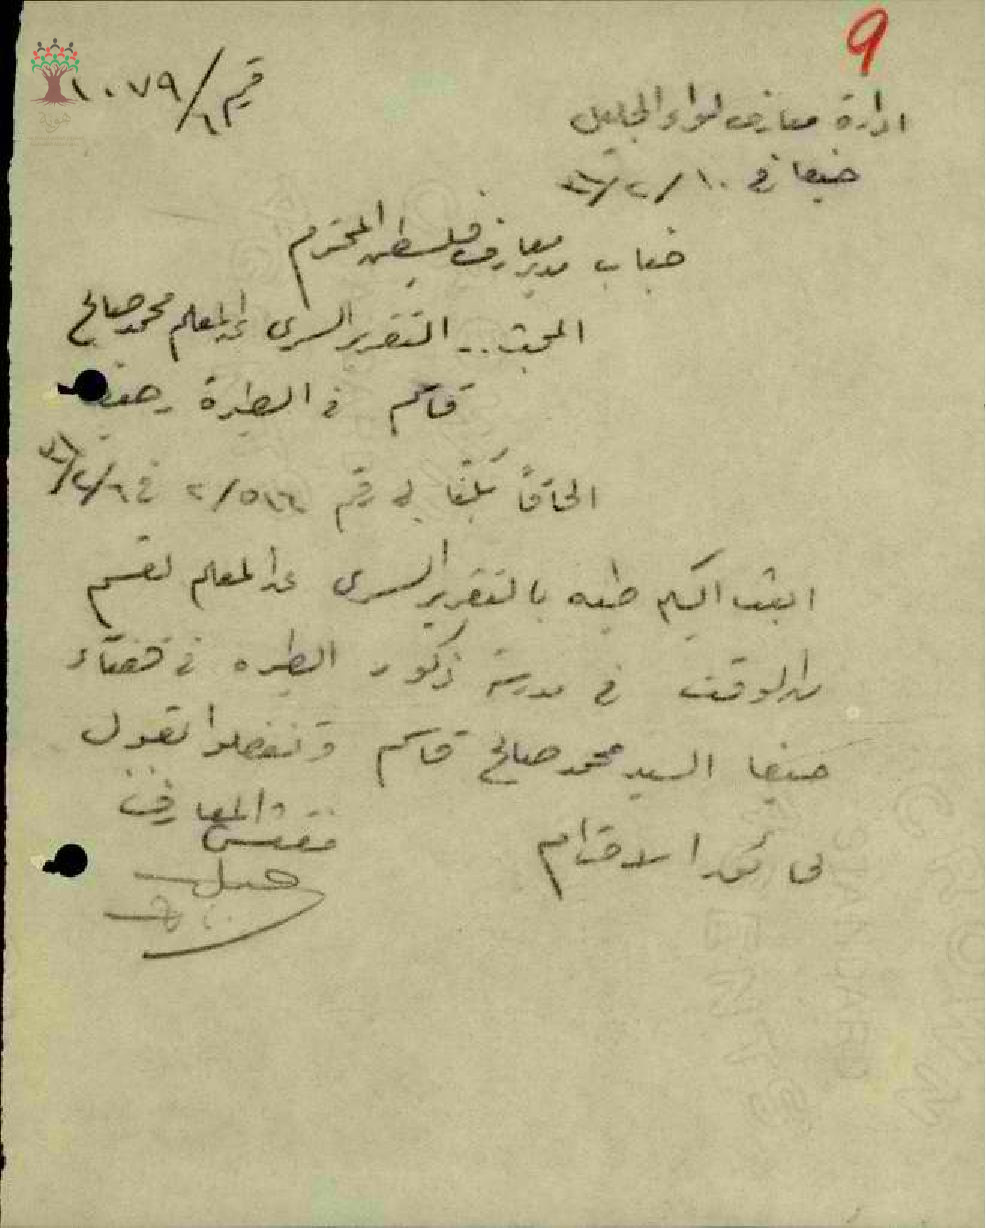 9
رقم ١٠٧٩/٦
ادارة معارف لواء الجليل
حيفا في ١٠/٢/
جناب مدير معارف فلسطين المحترم
المبحث .. التقرير السري عن المعلم محمد صالح
قاسم في الطيرة - حيفا
الحاقاً بكتابي رقم ٢/٥ في ٦/٢/
ابعث اليكم طيه بالتقرير السري عن المعلم لقسم
من الوقت في مدرسة ذكور الطيره في قضاء
حيفا السيد محمد صالح قاسم وتفضلوا بقبول
فائق الاحترام
مفتش المعارف
هوية